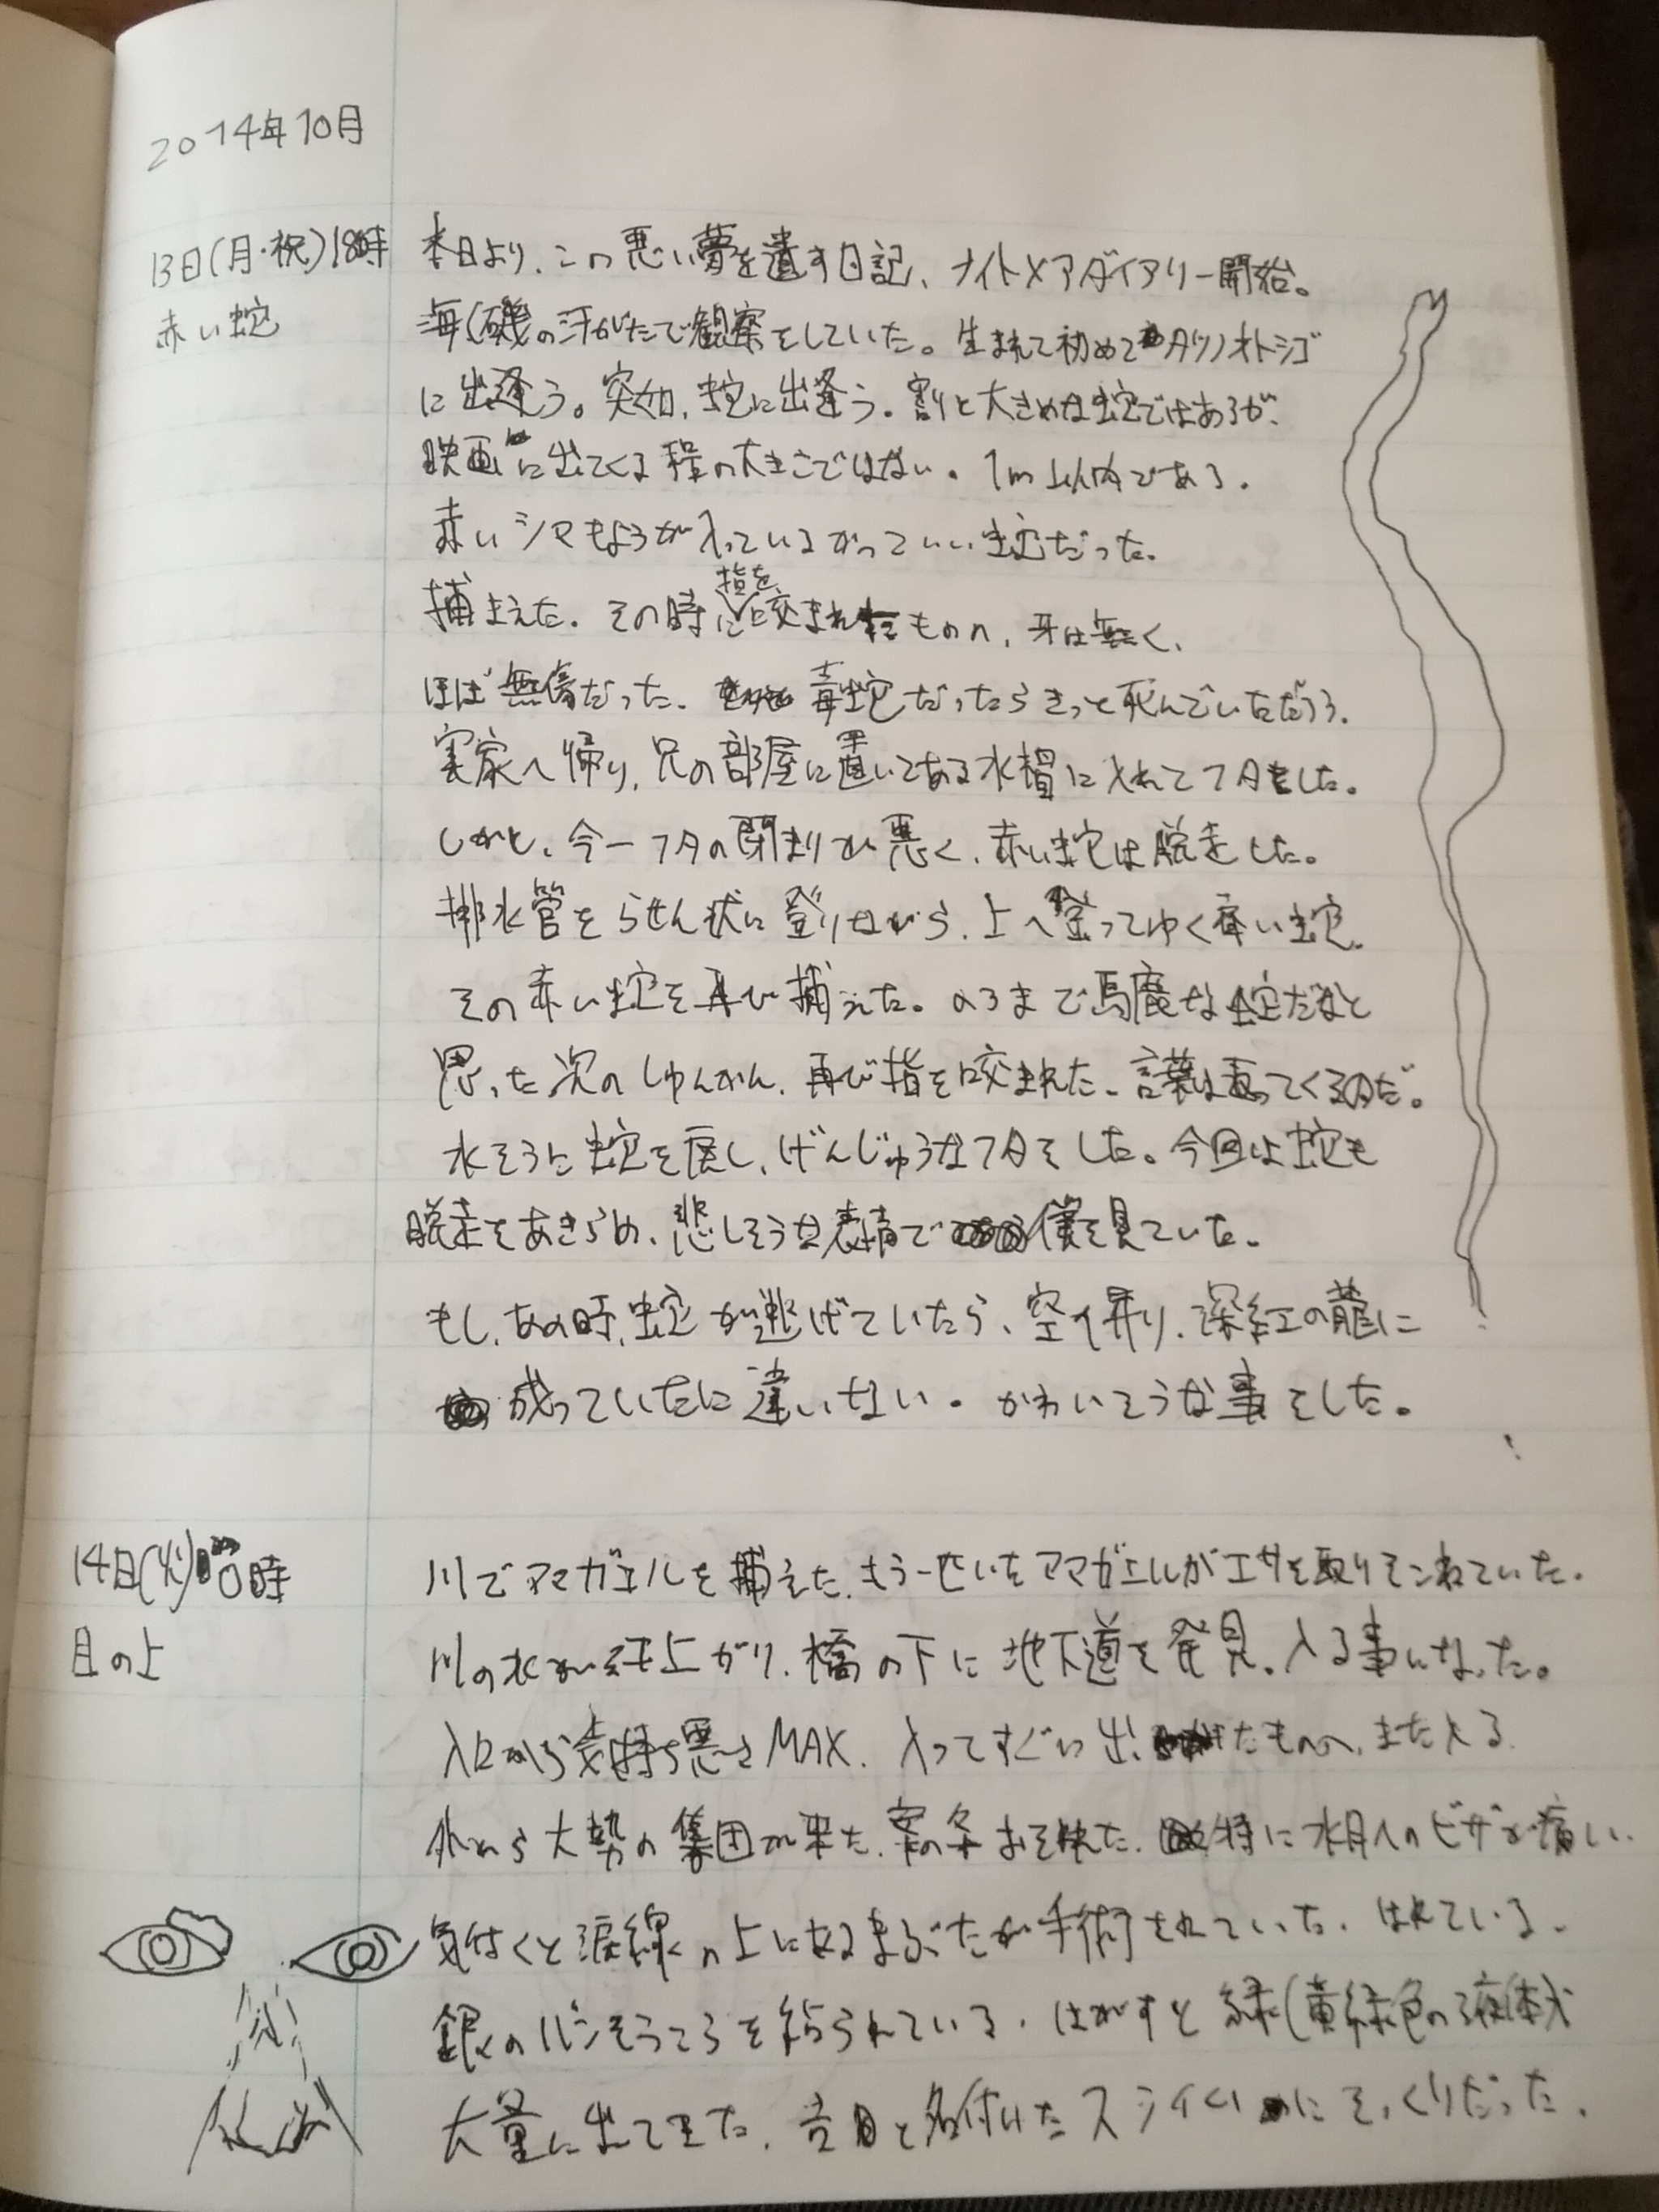 2014年10月
13日(月・祝)18時
赤い蛇
本日より、この悪い夢を遺す日記、ナイトメアダイアリー開始。
海(磯の干がた)で観察をしていた。生まれて初めてタツノオトシゴ
に出逢う。突如、蛇に出逢う。割と大きめな蛇ではあるが、
映画に出てくる程の大きさではない。1m以内である。
赤いシマもようが入っているかっていい蛇だった。
捕まえた。その時に指を咬まれたものの、牙は無く、
ほぼ無傷だった。毒蛇だったらきっと死んでいただろう。
実家へ帰り、兄の部屋に置いてある水槽に入れてフタをした。
しかし、今一フタの閉まりが悪く、赤い蛇は脱走した。
排水管をらせん状に登りながら、上へ登ってゆく赤い蛇。
その赤い蛇を再び捕えた。のろまで馬鹿な蛇だなと
思った次のしゅんかん、再び指を咬まれた。言葉は返ってくるのだ。
水そうに蛇を戻し、げんじゅうなフタをした。今回は蛇も
脱走をあきらめ、悲しそうな表情で僕を見ていた。
もし、あの時、蛇が逃げていたら、空へ昇り、深紅の龍に
成っていたに違いない。かわいそうな事をした。
14日(火)0時
目の上
川でアマガエルを捕えた。もう一匹いたアマガエルがエサを取りそこねていた。
川の水が干上がり、橋の下に地下道を発見。入る事になった。
入口から気持ち悪さMAX。入ってすぐに出たものの、また入る。
外から大勢の集団が来た。案の条おそわれた。特に水月へのヒザが痛い。
気付くと涙線の上にあるまぶたが手術されていた。はれている。
銀のバンそうこうを貼られている。はがすと緑(黄緑色の液体が
大量に出てきた。と名付けたスライムにそっくりだった。